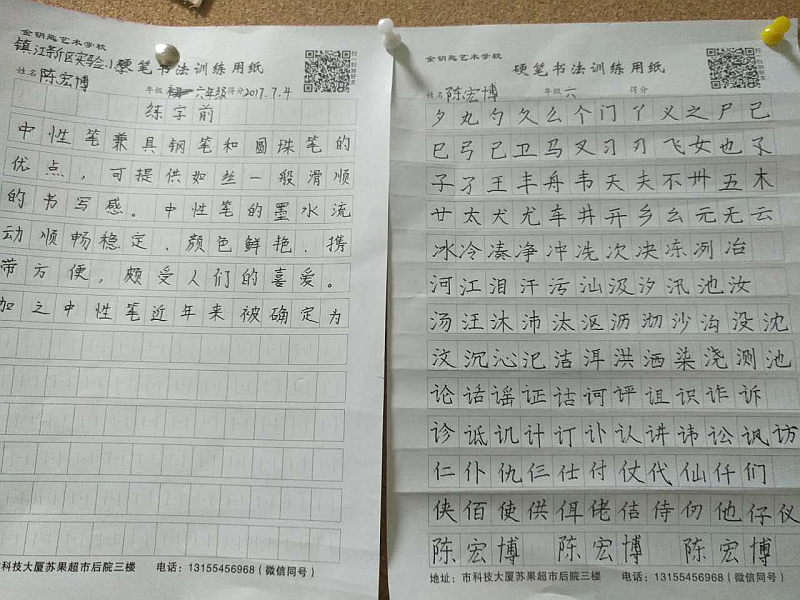 金钥匙艺术学校
镇江新区实验小学
硬笔书法训练用纸
姓名 陈宏博 年级 六年级 得分 2017.7.4
练字前
中性笔兼具钢笔和圆珠笔的
优点，可提供如丝一般滑顺
的书写感。中性笔的墨水流
动顺畅稳定、颜色鲜艳、携
带方便，颇受人们的喜爱。
加之中性笔近年来被确定为
市科技大厦苏果超市后院三楼 电话：13155456968（微信同号）
金钥匙艺术学校
硬笔书法训练用纸
姓名 陈宏博 年级 六 得分
夕丸勺久么个门丫义之尸己
巳弓己卫马叉刁刃飞女也
子孑王丰舟韦天夫不卅五木
廿太犬尤车井开乡幺元无云
冰冷凑净冲冼次决冻冽冶
河江泪汗污汕汲汐汛池汝
汤汪沐沛汰沤沥沏沙沟没沈
汶沉沁汜洁洱洪洒染浇测池
论话谣证诂诃评诅识诈诉
诊诋讥计订讣认讲讳讼讽访
仁仆仇仨仕付仗代仙仟们
侠佰使供佴佬佶侍仞他仔仪
陈宏博 陈宏博 陈宏博
地址：市科技大厦苏果超市后院三楼 电话：13155456968（微信同号）